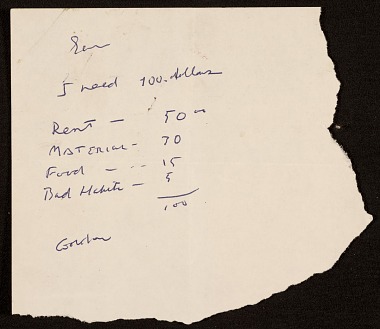 I need 100 dollars
Rent — 50 00
MATERIAL - 30
Food - -- 15
Bad Habits — 5
100
Gordon